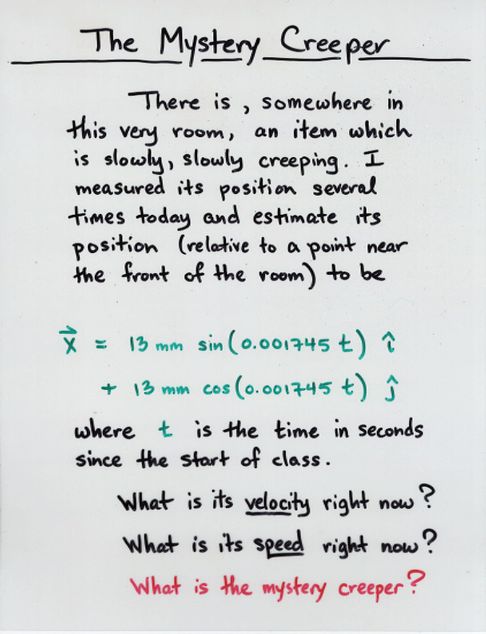 The Mystery Creeper
There is, somewhere in
this very room, an item which
is slowly, slowly creeping. I
measured its position several
times today and estimate its
position (relative to a point near
the front of the room) to be
x⃗ = 13 mm sin(0.001745 t) î
+ 13 mm cos(0.001745 t) ĵ
where t is the time in seconds
since the start of class.
What is its velocity right now?
What is its speed right now?
What is the mystery creeper?